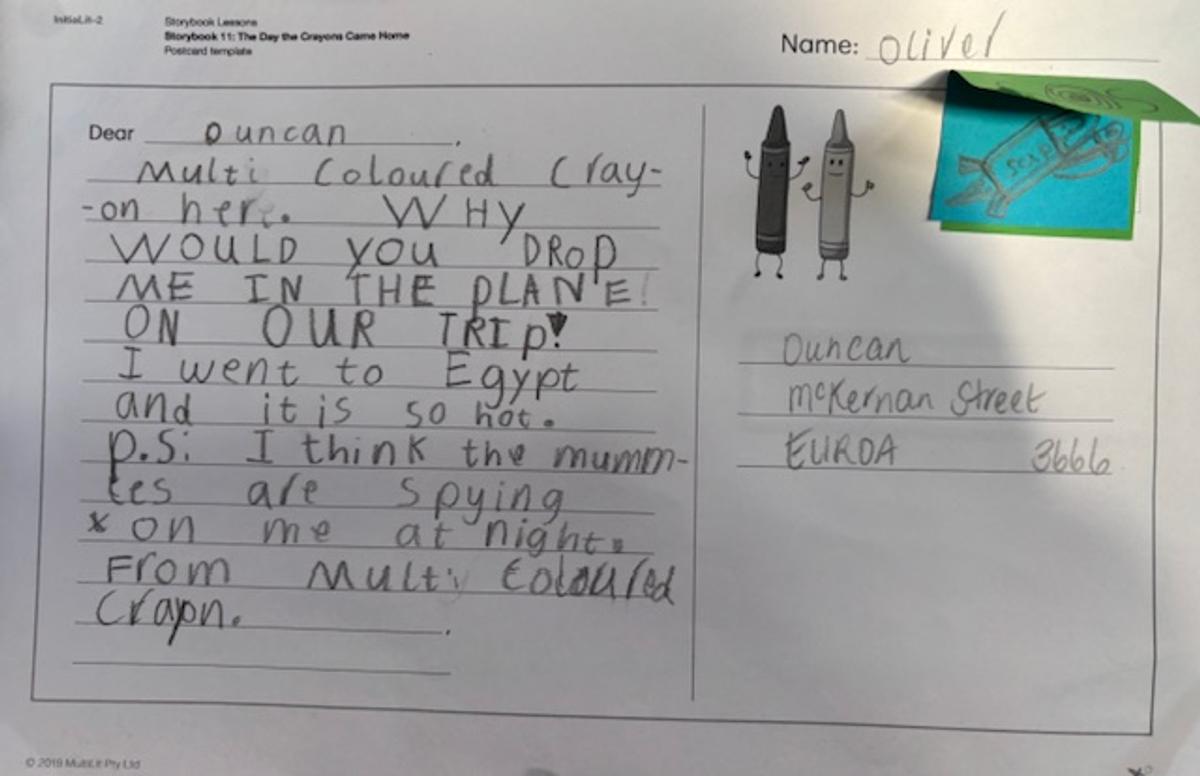 InitiaLit-2
Storybook Lessons
Storybook 11: The Day the Crayons Came Home
Postcard template
Name: Oliver
Dear Duncan,
Multi Coloured Cray-
-on here. WHY
WOULD YOU DROP
ME IN THE PLANE
ON OUR TRIP!
I went to Egypt
and it is so hot.
P.S: I think the mumm-
ies are spying
x on me at night.
From Multi Coloured
Crayon.
Duncan
McKernan Street
EUROA 3666
© 2019 MultiLit Pty Ltd